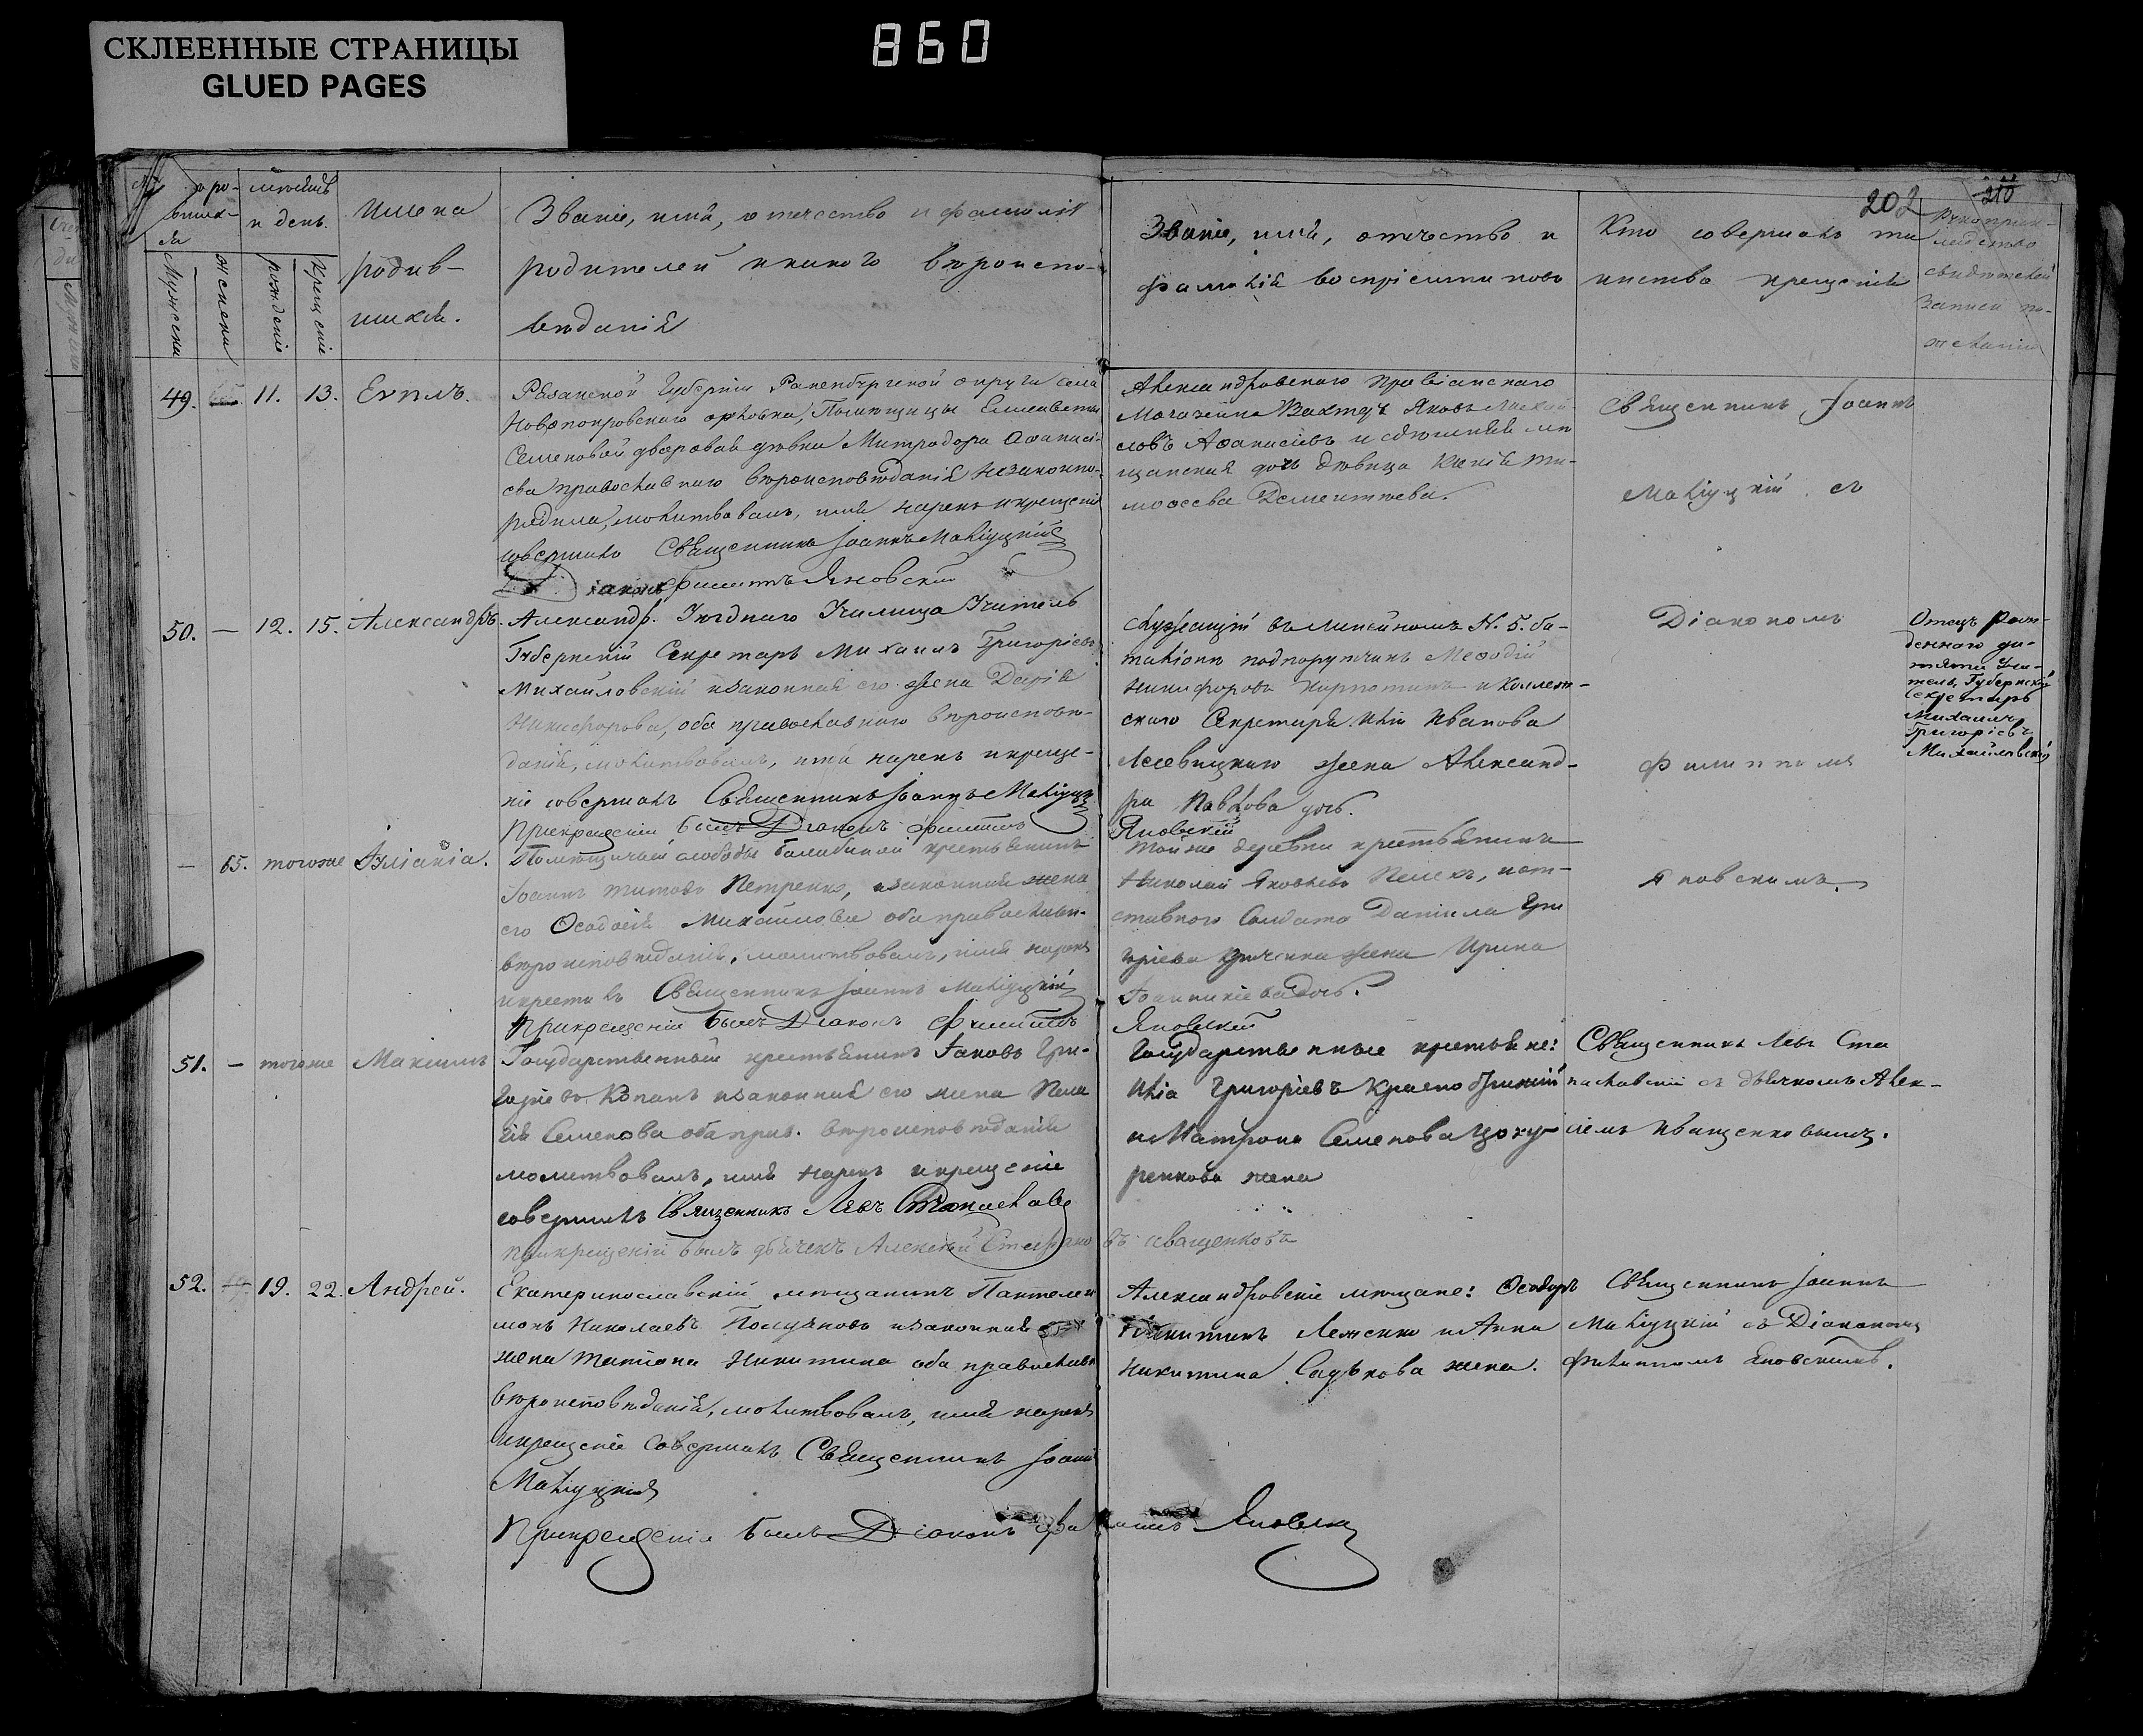 СКЛЕЕННЫЕ СТРАНИЦЫ
GLUED PAGES
860
202
210
мѣсяцъ
и день.
Мужеска
женска
рожденіе
крещеніе
Имена
родив-
шихся.
Званіе, имя, отчество и фамилія
родителей и какого вѣроиспо-
вѣданія
Званіе, имя, отчество и
фамилія воспріемниковъ
Кто совершалъ та
инство крещенія
49. 11. 13. Евплъ.
Рязанской Губерніи Раненбургской округи села
Новопокровскаго Помѣщицы Елисаветы
Семеновой дворовая дѣвка Митродора Афанась-
ева православнаго вѣроисповѣданія незаконно-
родила, молитвовалъ, имя нарекъ и крещеніе
совершалъ Священникъ Іоаннъ Маліуцкій
Діаконъ Филиппъ Яновскій
Александровскаго Провіанскаго
Магазейна Вахтеръ Яковъ
Афанасіевъ и мѣ
щанская дочь дѣвица Ти-
моѳеева Дементѣева.
Священникъ Іоаннъ
Маліуцкій съ
50. — 12. 15. Александръ.
Александр. Уѣзднаго Училища Учитель
Губернскій Секретарь Михаилъ Григорьевъ
Михайловскій и законная его жена Дарія
Никифорова, оба православнаго вѣроисповѣ-
данія, молитвовалъ, имя нарекъ и креще-
ніе совершалъ Священникъ Іоаннъ Маліуцкій
При крещеніи былъ Діаконъ Филиппъ
Яновскій
Служащій въ Линейномъ N. 5. ба-
таліонѣ подпоручикъ Меѳодій
Никифоровъ и Коллеж-
скаго Секретаря Иліи Иванова
жена Александ-
ра Павлова дочь.
Діакономъ
Филиппомъ
Яновскимъ.
Отецъ рож-
деннаго ди-
тяти Учи-
тель, Губернскій
Секретарь
Михаилъ
Григорьевъ
Михайловскій
— 65. тогоже Іуліанія.
Помѣщичьей слободы крестьянинъ
Іоаннъ Титовъ Петренко, и законная жена
его Ѳеодосія Михайлова оба православн.
вѣроисповѣданія, молитвовалъ, имя нарекъ
и крестилъ Священникъ Іоаннъ Маліуцкій
При крещеніи былъ Діаконъ Филиппъ
Яновскій
Той же деревни крестьянинъ
Николай Яковлевъ и от-
ставного Солдата Даніила Гри
горіева жена Ирина
51. — тогоже Максимъ
Государственный крестьянинъ Іаковъ Гри-
горіевъ Копанъ и законная его жена Пела
гія Семенова оба прав. вѣроисповѣданія
молитвовалъ, имя нарекъ и крещеніе
совершилъ Священникъ Левъ Станиславскій
При крещеніи былъ дьячекъ Алексѣй Стефано
въ Иващенковъ
Государственные крестьяне:
Илія Григорьевъ
и Матрона Семенова
ренкова жена
Священникъ Левъ Ста
ниславскій съ дьячкомъ Алек-
сіемъ Иващенковымъ.
52. 19. 22. Андрей.
Екатеринославскій мѣщанинъ Пантелеи
монъ Николаевъ и законная
жена Татіана Никитина оба православн
вѣроисповѣданія, молитвовалъ, имя нарекъ
и крещеніе совершалъ Священникъ Іоаннъ
Маліуцкій
При крещеніи былъ Діаконъ Филиппъ Яновскій
Александровскіе мѣщане: Ѳеодоръ
Никитинъ и Анна
Никитина Садѣкова жена.
Священникъ Іоаннъ
Маліуцкій съ Діакономъ
Филиппомъ Яновскимъ.